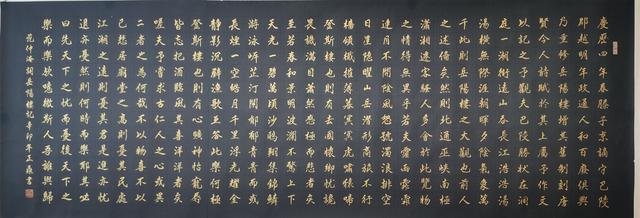 慶曆四年春滕子京謫守巴陵
郡越明年政通人和百廢俱興
乃重修岳陽樓增其舊制刻唐
賢今人詩賦於其上屬予作文
以記之予觀夫巴陵勝狀在洞
庭一湖銜遠山吞長江浩浩湯
湯橫無際涯朝暉夕陰氣象萬
千此則岳陽樓之大觀也前人
之述備矣然則北通巫峽南極
瀟湘遷客騷人多會於此覽物
之情得無異乎若夫霪雨霏霏
連月不開陰風怒號濁浪排空
日星隱曜山岳潛形商旅不行
檣傾楫摧薄暮冥冥虎嘯猿啼
登斯樓也則有去國懷鄉憂讒
畏譏滿目蕭然感極而悲者矣
至若春和景明波瀾不驚上下
天光一碧萬頃沙鷗翔集錦鱗
游泳岸芷汀蘭郁郁青青而或
長煙一空皓月千里浮光耀金
靜影沉璧漁歌互答此樂何極
登斯樓也則有心曠神怡寵辱
皆忘把酒臨風其喜洋洋者矣
嗟夫予嘗求古仁人之心或異
二者之爲何哉不以物喜不以
己悲居廟堂之高則憂其民處
江湖之遠則憂其君是進亦憂
退亦憂然則何時而樂耶其必
曰先天下之憂而憂後天下之
樂而樂歟噫微斯人吾誰與歸
范仲淹詞岳陽樓記辛卯年王書